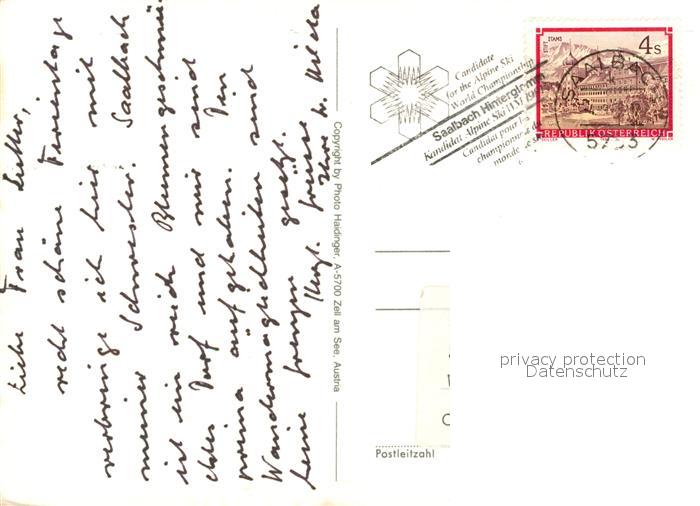 Liebe Frau Luther,
recht schöne Ferientage
verbringe ich hier mit
meiner Schwester. Saalbach
ist ein reich Blumengeschmü
Dorf und wir sind
prima aufgehoben. Den
Wandermöglichkeiten sind
keine Grenzen gesetzt.
Herzl. Grüsse
Ihre
Copyright by Photo Haidinger, A-5700 Zell am See, Austria
Candidate
for the Alpine Ski
World Championship
Saalbach Hinterglemm
Kandidat Alpine Ski WM
Candidat pour
championnat
monde
STIFT STAMS
4 S
REPUBLIK ÖSTERREICH
SAALBACH
Postleitzahl
privacy protection
Datenschutz